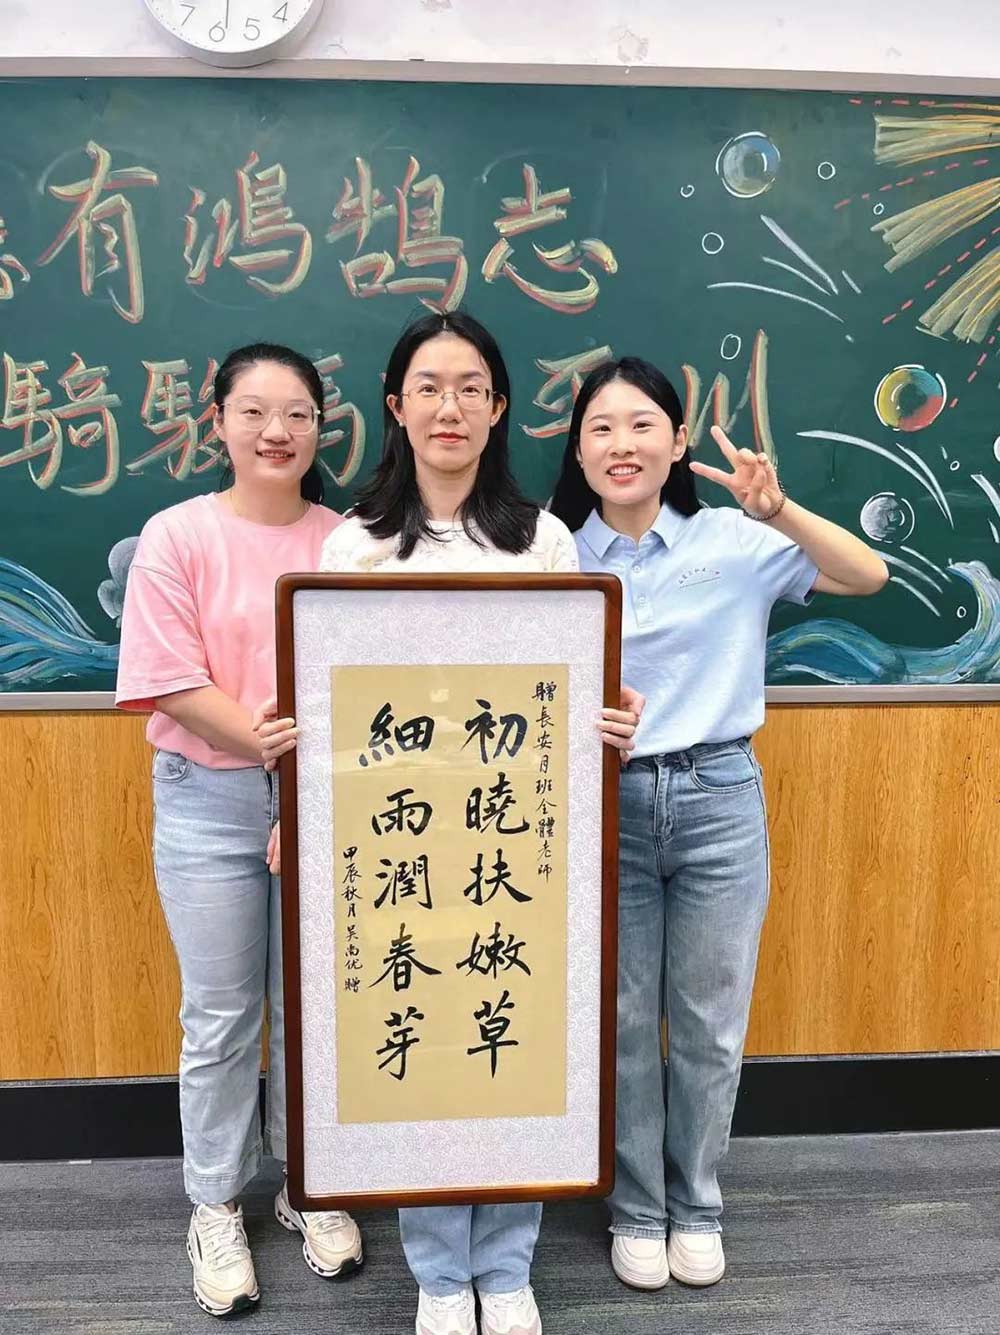 7 6 5 4
有鴻鵠志
騎駿馬平川
贈長安月班全體老師
初曉扶嫩草
細雨潤春芽
甲辰秋月吴尚优贈